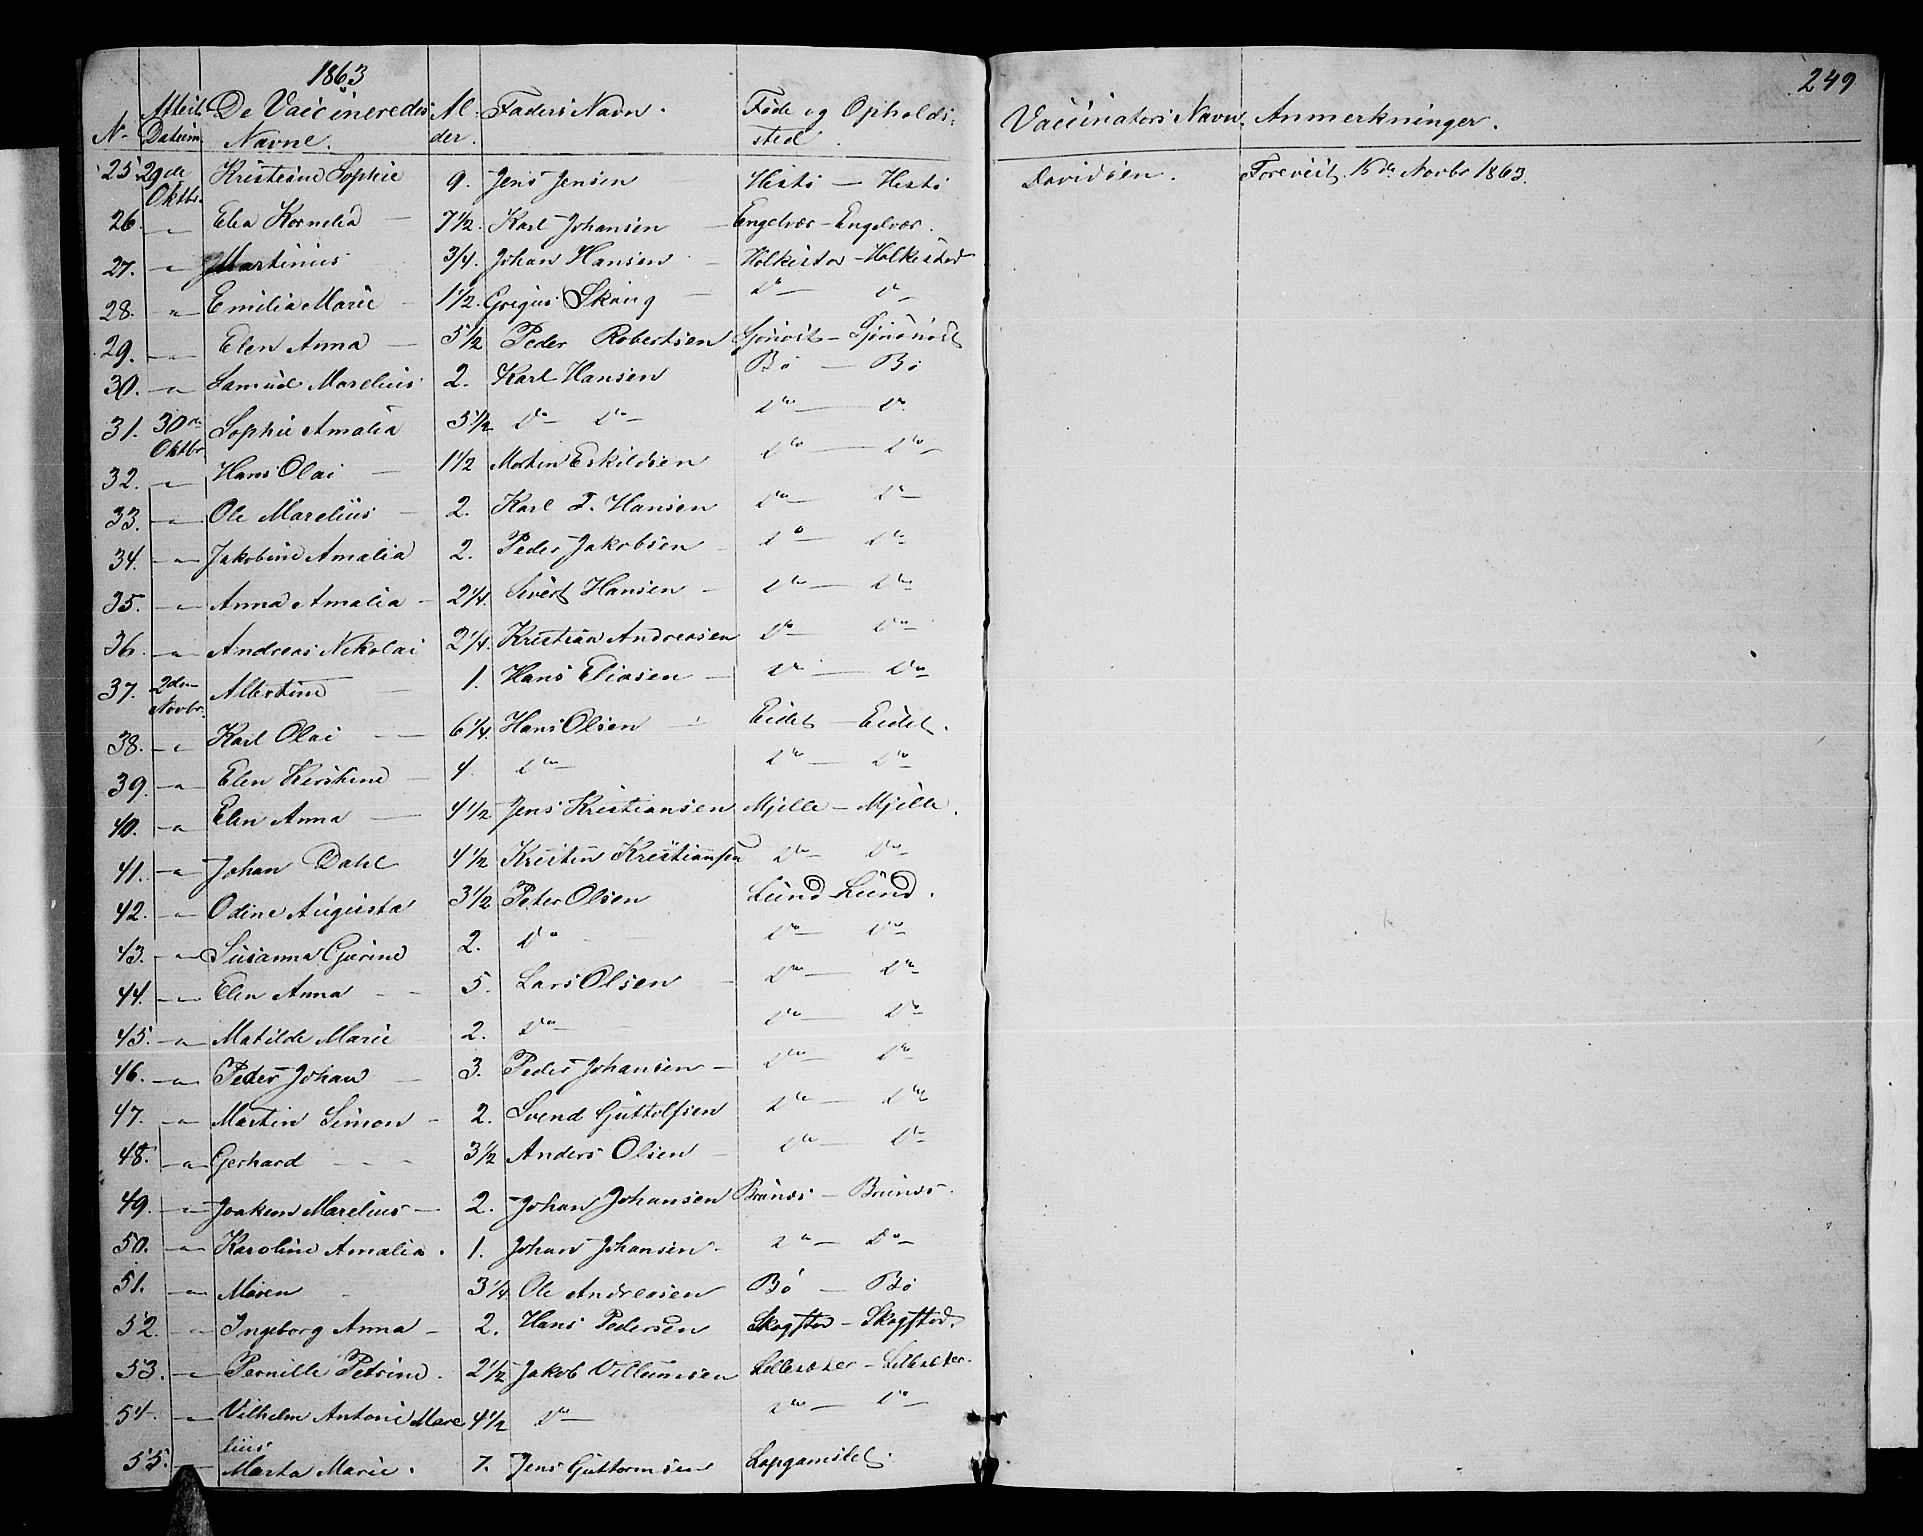 1863
249
N. Attest. Datum. De Vaccineredes Navne. Alder. Faders Navn. Føde og Opholdssted. Vaccinators Navn. Anmerkninger.
25 29de Oktbr. Kristine Sophie 9. Jens Jensen Hestø — Hestø Davidsen. Forevist 16de Novbr 1863.
26. — " — Elea Kornelia — 7 1/2. Karl Johansen — Engelvær — Engelvær.
27. — " — Martinus 3/4. Johan Hansen Holkestad — Holkestad
28. — " — Emilia Marie — 1 1/2. Gregus Skaug — Do — Do —
29. — " — Elen Anna — 5 1/2 Peder Robertsen
30. — " — Samuel Marelius 2. Karl Hansen Bø — Bø
31. 30te Oktbr Sophie Amalia 5 1/2 Do — Do — Do — Do
32. — " — Hans Olai — 1 1/2 Morten Eskildsen Do — Do —
33. — " — Ole Marelius — 2. Karl J. Hansen Do — Do —
34. — " — Jakobine Amalia 2. Peder Jakobsen — Do — Do —
35. — " — Anna Amalia — 2 1/4. Sivert Hansen — Do — Do —
36. — " — Andreas Nikolai 2 1/4. Kristian Andreasen Do — Do —
37. 2den Novbr. Albertine — 1. Hans Eliasen — Do — Do —
38. — " — Karl Olai — 6 1/4. Hans Olsen — Eidet — Eidet.
39. — " — Elen Kerstine — 4. Do — Do — Do —
40. — " — Elen Anna — 4 1/2 Jens Kristiansen Mjelle — Mjelle.
41. — " — Johan Dahl 4 1/2 Kristen Kristiansen Do — Do —
42. — " — Odine Augusta 3 1/2 Peter Olsen Lund — Lund.
43. — " — Susanna Gjerine 2. Do Do — Do —
44. — " — Elen Anna — 5. Lars Olsen — Do — Do —
45. — " — Matilde Marie 2. Do — Do — Do
46. — " — Peder Johan — 3. Peder Johansen — Do — Do
47. — " — Martin Simon — 2. Svend Guttolfsen Do — Do
48. — " — Gerhard — 3 1/2 Anders Olsen — Do — Do —
49. — " — Joakim Marelius — 2. Johan Johansen Brunæs — Brunæs.
50. — " — Karoline Amalia. 1. Johan Johansen — Do — Do —
51. — " — Maren 3 1/4. Ole Andreasen Bø — Bø
52. — " — Ingeborg Anna — 2. Hans Pedersen Skogstad — Skogstad.
53. — " — Pernille Petrine. 2 1/2 Jakob Villumsen Lillesæter — Lillesæter.
54. — " — Vilhelm Antoni Mare 4 1/2 Do — Do — Do —
lius
55. — " — Marta Marie. 7. Jens Guttormsen